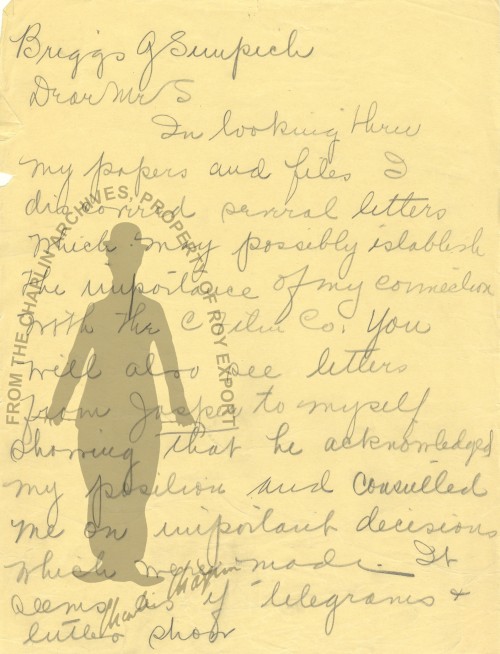 Briggs G Simpich
Dear Mr S
In looking threw
my papers and files I
discovered several letters
which may possibly istablish
the importance of my connection
with the C Film Co. You
will also see letters
from Jasper to myself
showing that he acknowledged
my position and consulted
me on important decisions
which were made. It
seems if telegrams +
letters show
Charlie Chaplin
FROM THE CHAPLIN ARCHIVES, PROPERTY OF ROY EXPORT